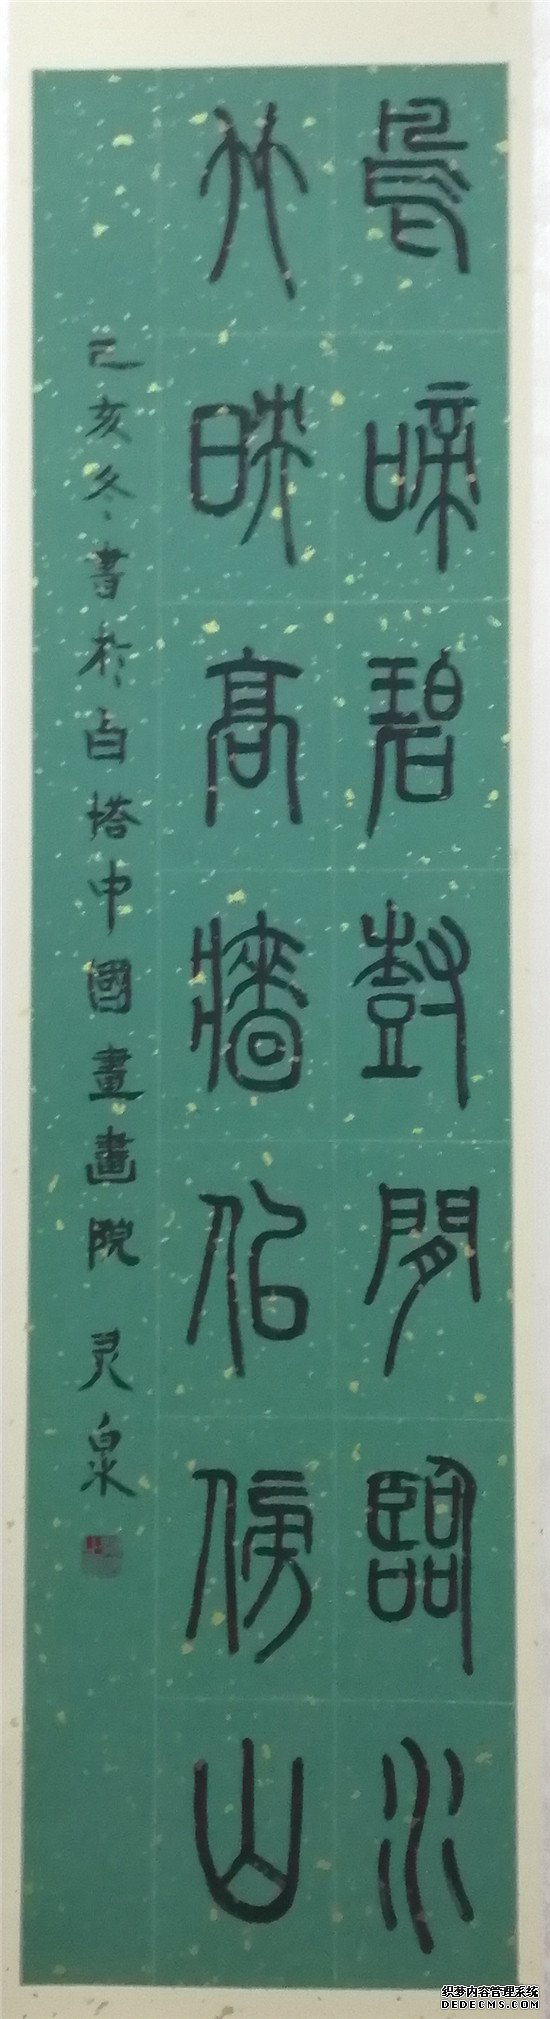 鳥啼碧樹閒臨水
竹映高牆似傍山
己亥冬書於白塔中國書畫院 灵泉
织梦内容管理系统
DEDECMS.COM